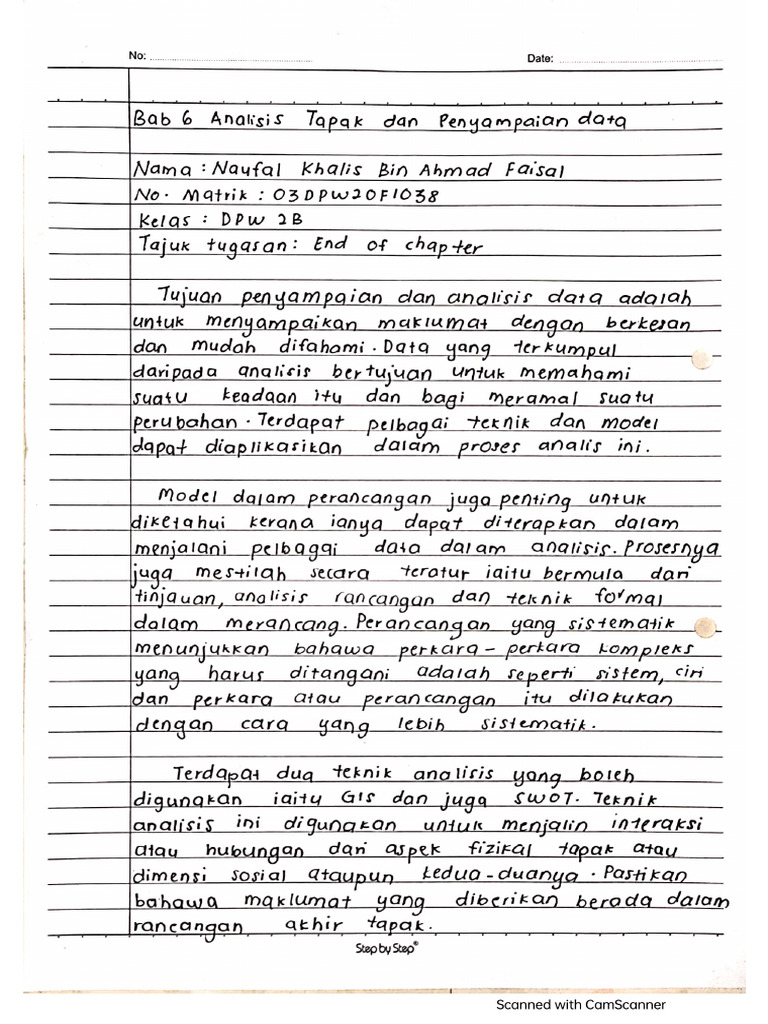 No:
Date:
Bab 6 Analisis Tapak dan Penyampaian data
Nama : Naufal Khalis Bin Ahmad Faisal
No. Matrik : 03DPW20F1038
Kelas : DPW 2B
Tajuk tugasan : End of chapter
Tujuan penyampaian dan analisis data adalah
untuk menyampaikan maklumat dengan berkesan
dan mudah difahami. Data yang terkumpul
daripada analisis bertujuan untuk memahami
suatu keadaan itu dan bagi meramal suatu
perubahan. Terdapat pelbagai teknik dan model
dapat diaplikasikan dalam proses analis ini.
Model dalam perancangan juga penting untuk
diketahui kerana ianya dapat diterapkan dalam
menjalani pelbagai data dalam analisis. Prosesnya
juga mestilah secara teratur iaitu bermula dari
tinjauan, analisis rancangan dan teknik formal
dalam merancang. Perancangan yang sistematik
menunjukkan bahawa perkara-perkara kompleks
yang harus ditangani adalah seperti sistem, ciri
dan perkara atau perancangan itu dilakukan
dengan cara yang lebih sistematik.
Terdapat dua teknik analisis yang boleh
digunakan iaitu GIS dan juga SWOT. Teknik
analisis ini digunakan untuk menjalin interaksi
atau hubungan dari aspek fizikal tapak atau
dimensi sosial ataupun kedua-duanya. Pastikan
bahawa maklumat yang diberikan berada dalam
rancangan akhir tapak.
Step by Step®
Scanned with CamScanner